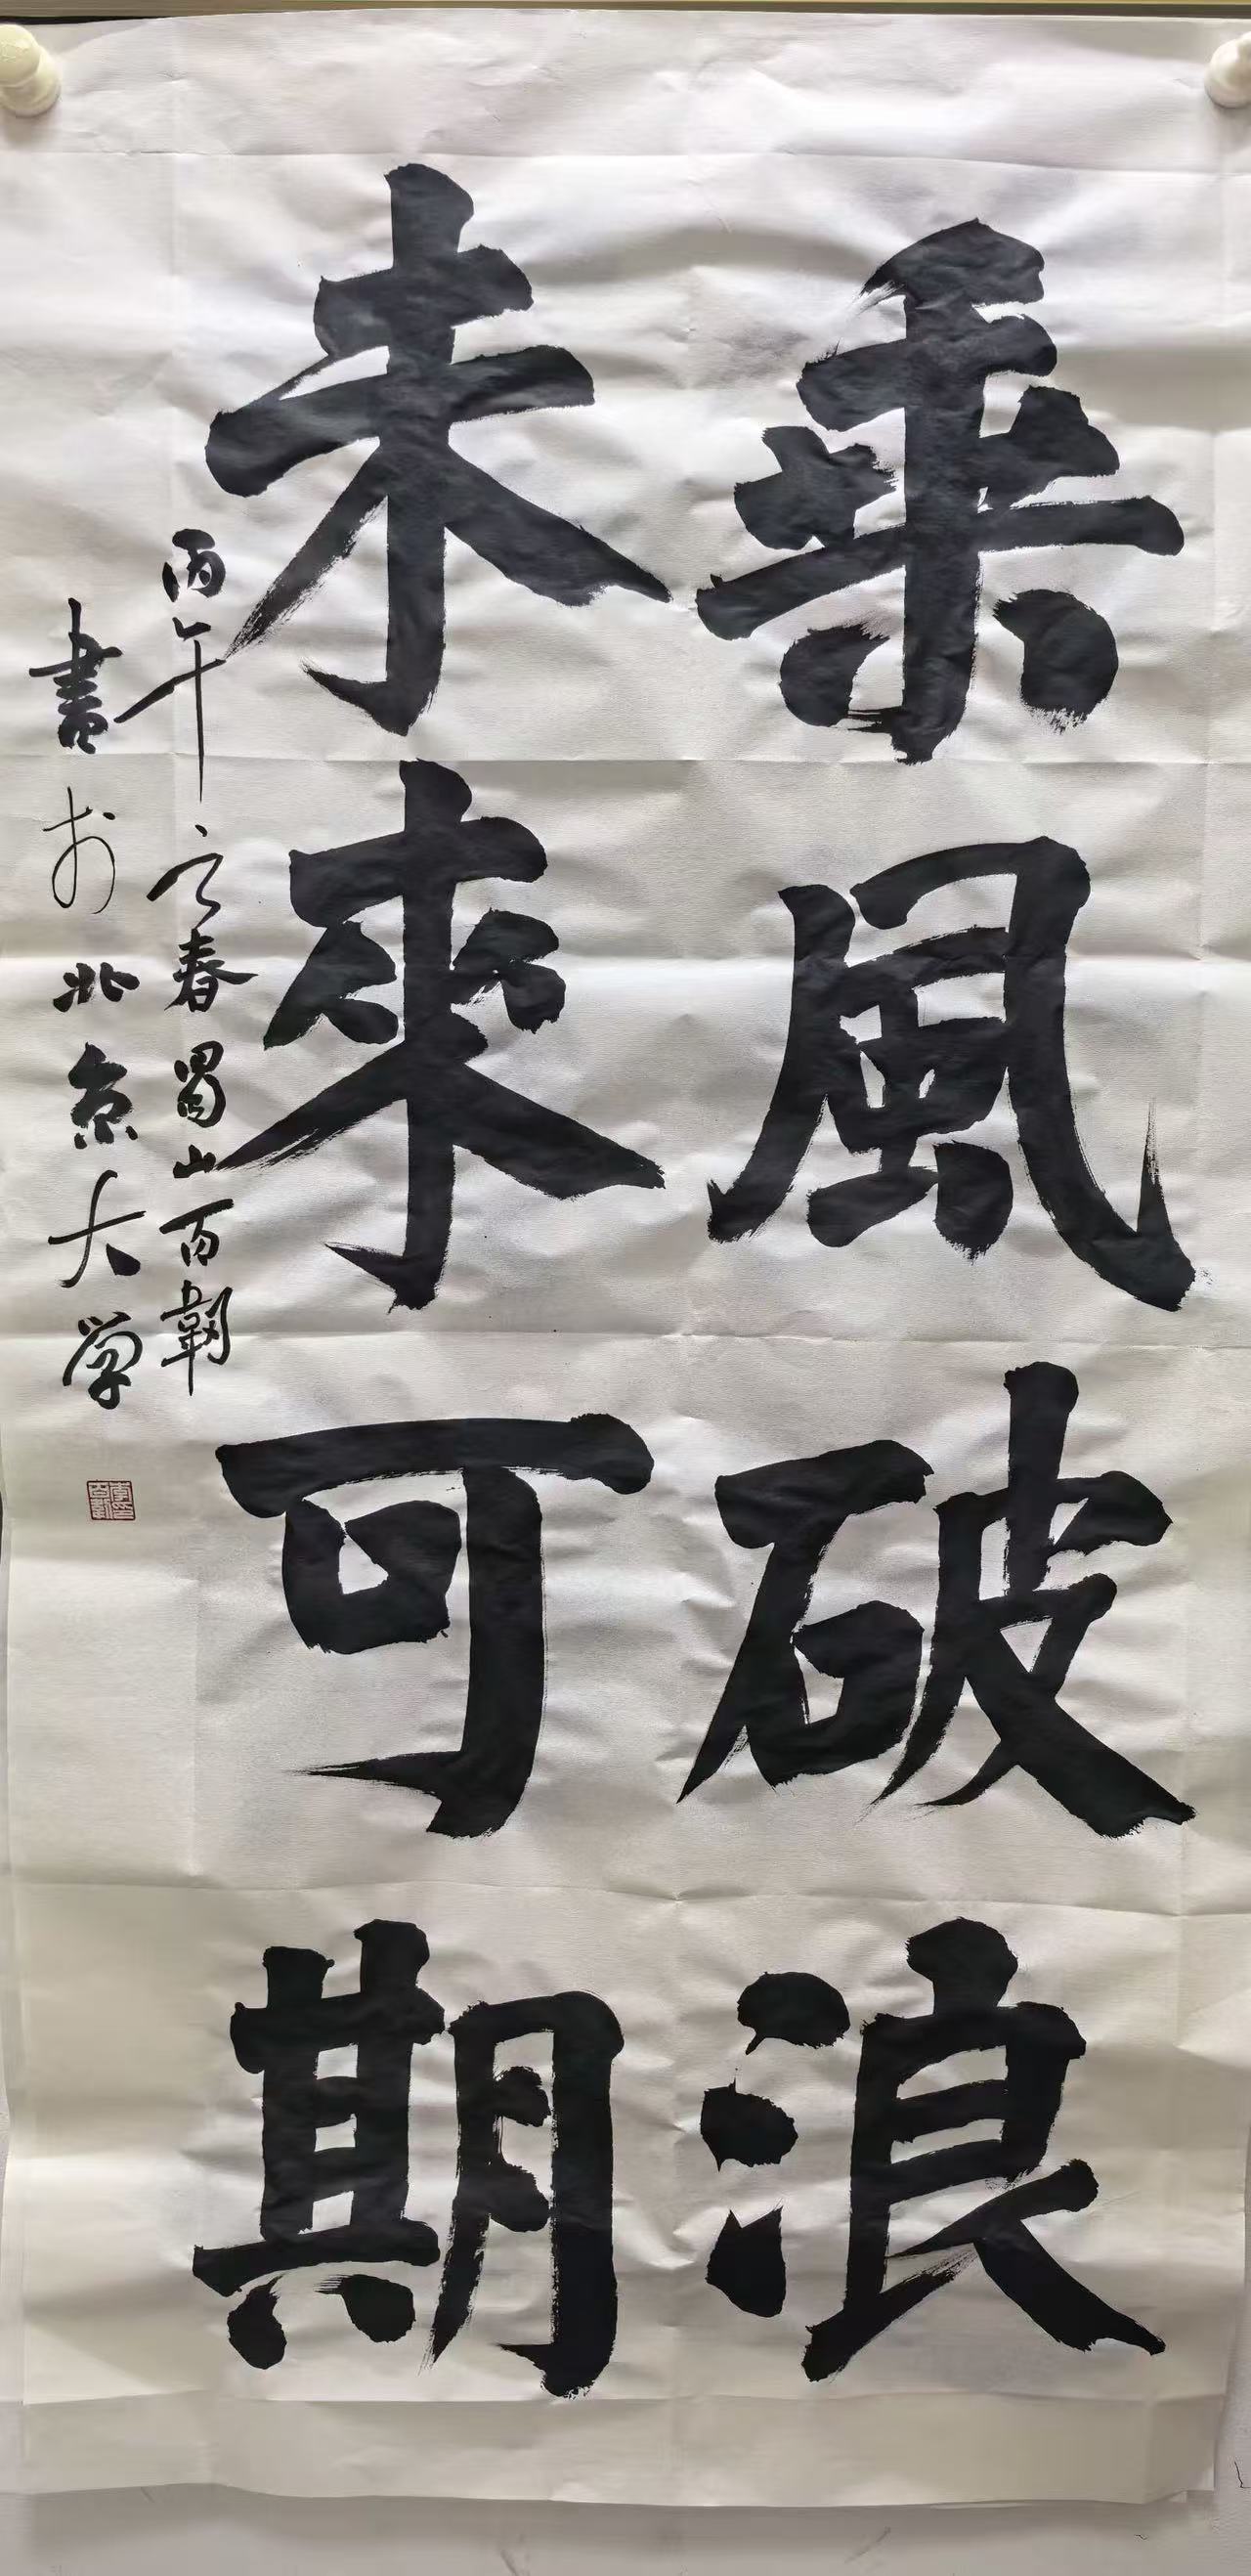 乘風破浪
未來可期
丙午之春蜀山百韌
書於北京大学